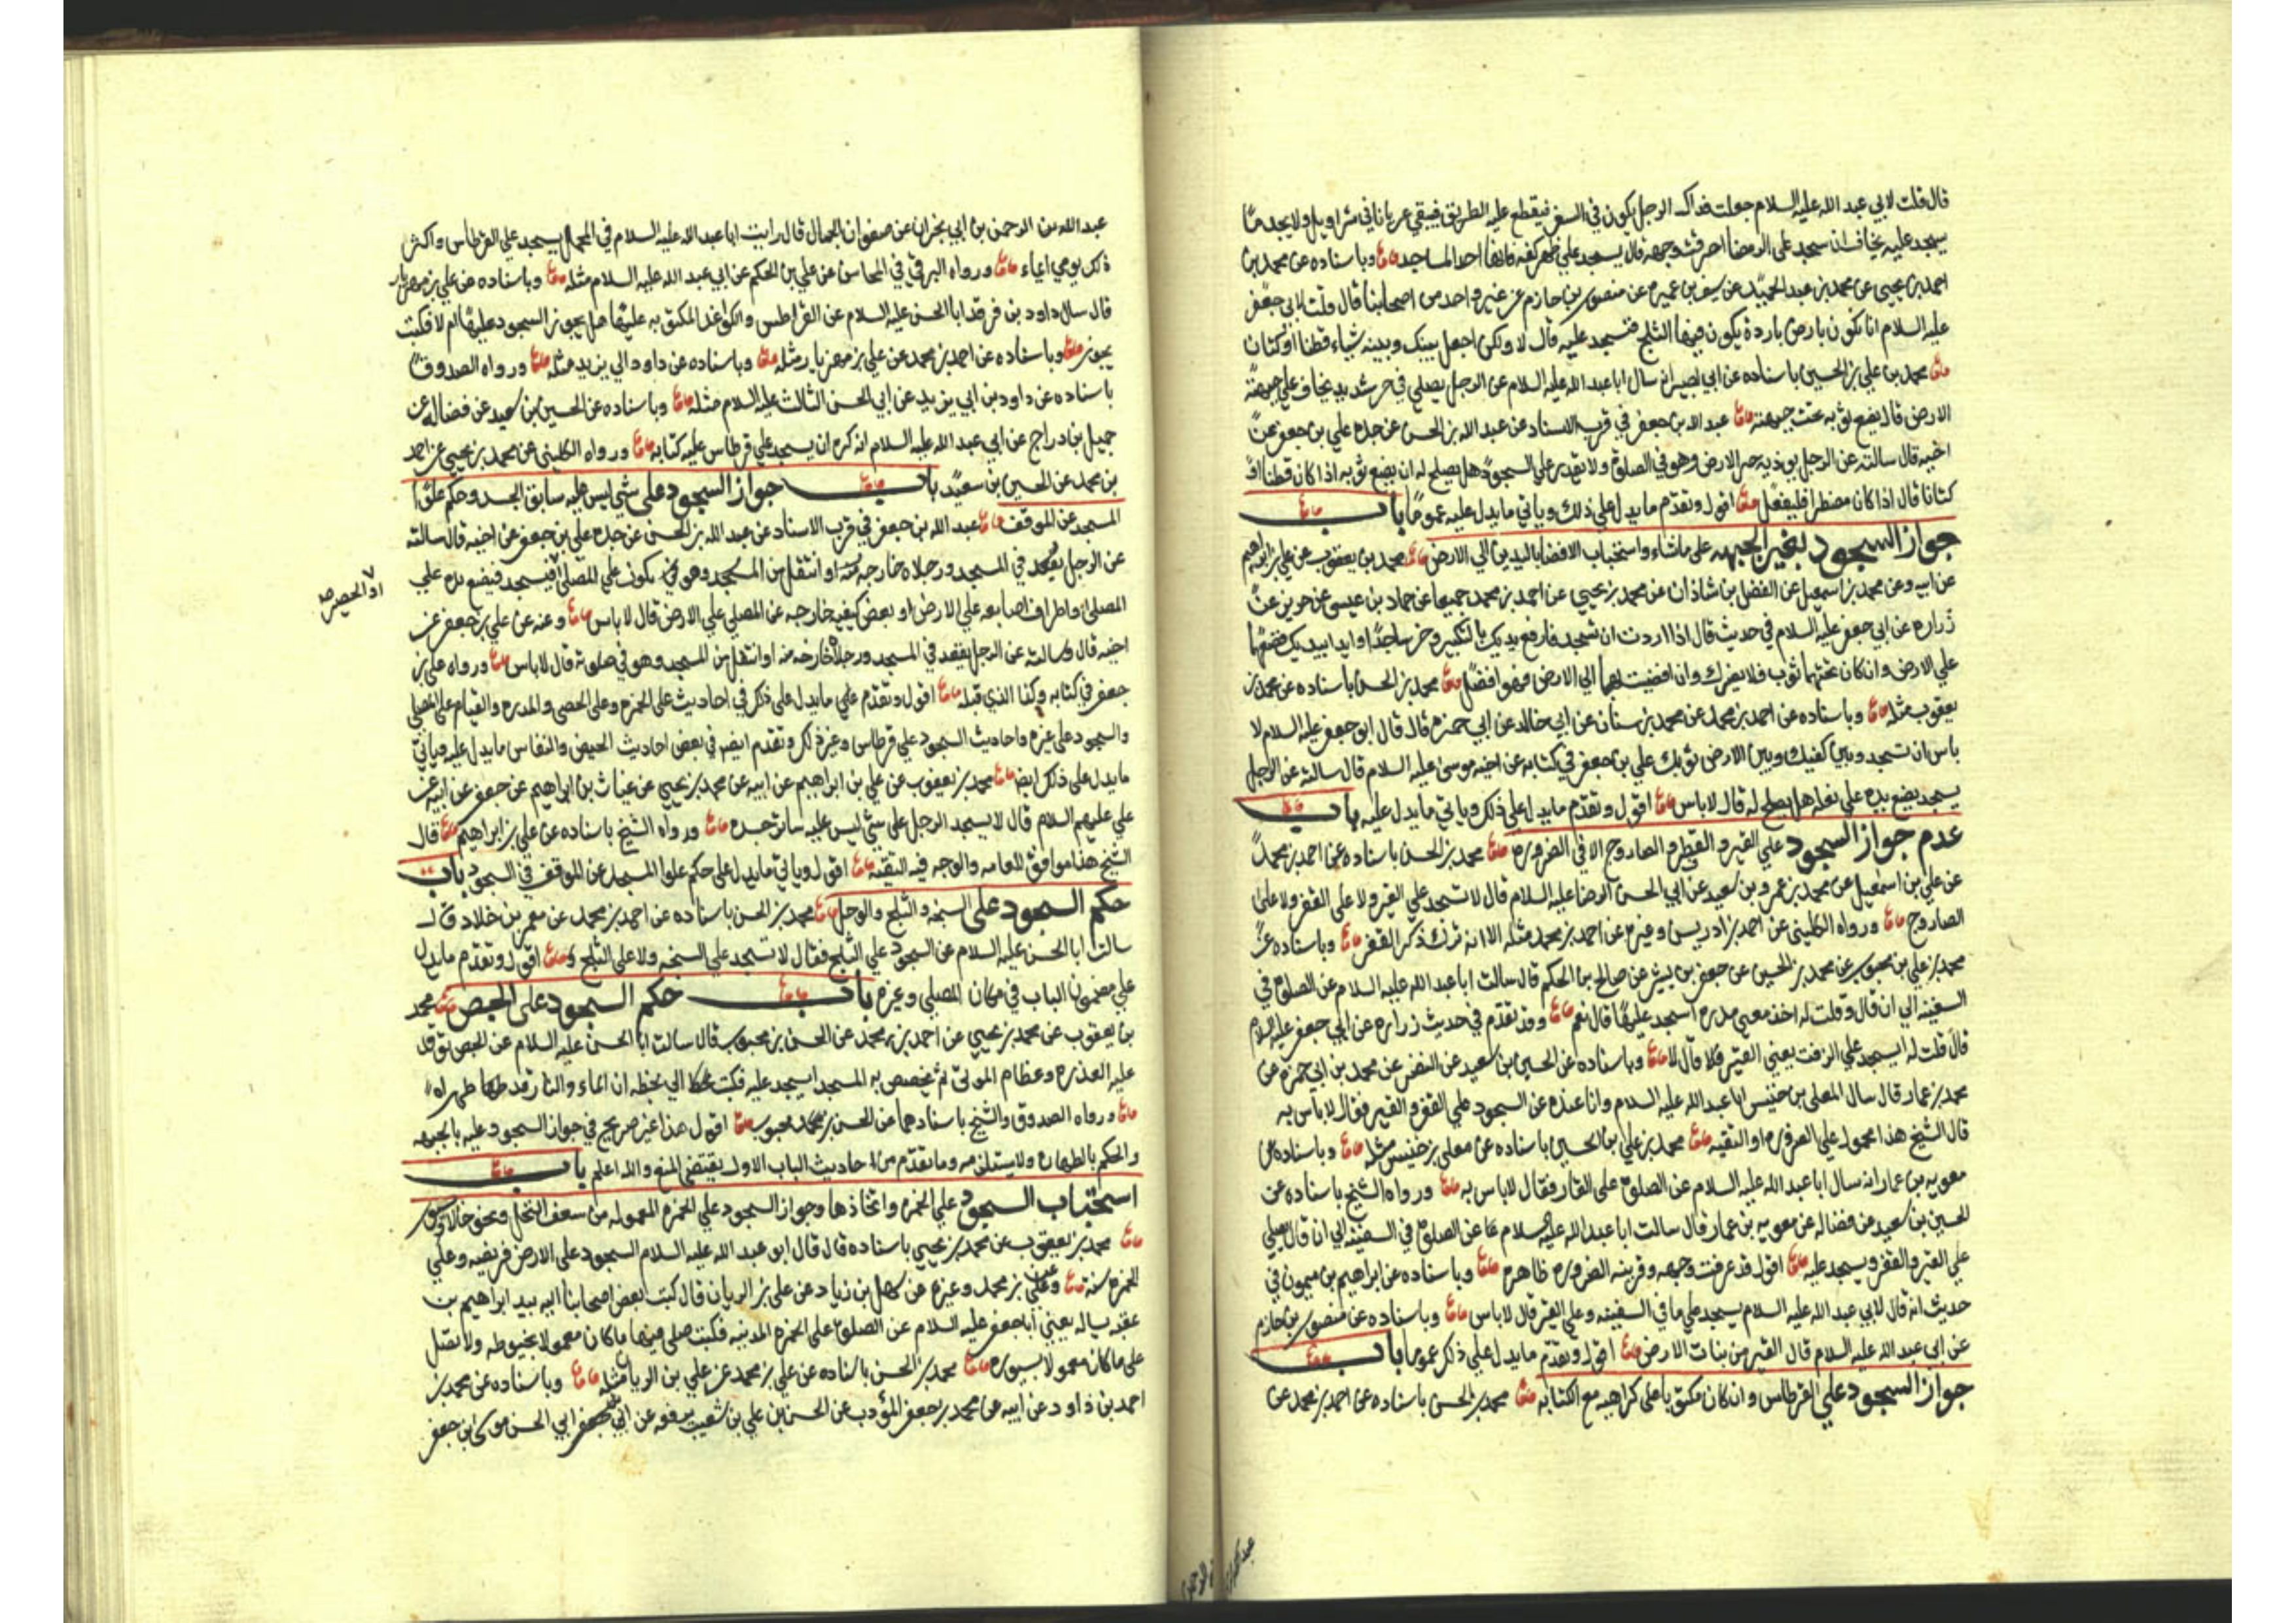 قال قلت لابي عبد الله عليه السلام جعلت فداك الرجل يكون في السفر فيقطع عليه الطريق فيبقي عريانا في سراويل ولا يجد ما
يسجد عليه يخاف ان سجد علي الرمضا احرقت وجهه قال يسجد علي ظهر كفه فانها احد المساجد وباسناده عن محمد بن
احمد بن يحيي عن محمد بن عبد الحميد عن سيف بن عميره عن منصور بن حازم عن غير واحد من اصحابنا قال قلت لابي جعفر
عليه السلام انا نكون بارض باردة يكون فيها الثلج فنسجد عليه قال لا ولكن اجعل بينك وبينه شياء قطنا او كتانا
محمد بن علي بن الحسين باسناده عن ابي بصير انه سال ابا عبد الله عليه السلام عن الرجل يصلي في حر شديد يخاف علي جبهته
الارض قال يضع ثوبه تحت جبهته عبد الله بن جعفر في قرب الاسناد عن عبد الله بن الحسن عن جده علي بن جعفر عن
اخيه قال سالته عن الرجل يوذيه حر الارض وهو في الصلوة ولا يقدر علي السجود هل يصلح له ان يضع ثوبه اذا كان قطنا او
كتانا قال اذا كان مضطرا فليفعل اقول وتقدم ما يدل علي ذلك وياتي ما يدل عليه عموما باب
جواز السجود بغير الجبهه علي ما شاء واستحباب الافضا باليدين الي الارض محمد بن يعقوب عن علي بن ابراهيم
عن ابيه وعن محمد بن اسمعيل عن الفضل بن شاذان عن محمد بن يحيي عن احمد بن محمد جميعا عن حماد بن عيسي عن حريز عن
زراره عن ابي جعفر عليه السلام في حديث قال اذا اردت ان تسجد فارفع يديك بالتكبير وخر ساجدا وابدا بيديك فضعهما
علي الارض وان كان تحتهما ثوب فلا يضرك وان افضيت بهما الي الارض فهو افضل محمد بن الحسن باسناده عن محمد بن
يعقوب مثله وباسناده عن احمد بن محمد عن محمد بن سنان عن ابي خالد عن ابي حمزه قال قال ابو جعفر عليه السلام لا
باس ان تسجد وبين كفيك وبين الارض ثوبك علي بن جعفر في كتابه عن اخيه موسي عليه السلام قال سالته عن الرجل
يسجد يضع يده علي نعله هل يصلح له قال لا باس اقول وتقدم ما يدل علي ذلك وياتي ما يدل عليه باب
عدم جواز السجود علي القير و القفر و الصاروج الا في الضروره محمد بن الحسن باسناده عن احمد بن محمد
عن علي بن اسمعيل عن محمد بن عمرو بن سعيد عن ابي الحسن الرضا عليه السلام قال لا تسجد علي القير ولا علي القفر ولا علي
الصاروج ورواه الكليني عن احمد بن ادريس وغيره عن احمد بن محمد مثله الا انه ترك ذكر القفر وباسناده عن
محمد بن علي بن محبوب عن محمد بن الحسين عن جعفر بن بشير عن صالح بن الحكم قال سالت ابا عبد الله عليه السلام عن الصلوة في
السفينه الي ان قال وقلت له اخذ معي مدره اسجد عليها قال نعم وقد تقدم في حديث زراره عن ابي جعفر عليه السلام
قال قلت له ايسجد علي الزفت يعني القير فلا قال لا وباسناده عن الحسين بن سعيد عن النضر عن محمد بن ابي حمزه عن
محمد بن عمار قال سال المعلي بن خنيس ابا عبد الله عليه السلام وانا عنده عن السجود علي القفر و القير فقال لا باس به
قال الشيخ هذا محمول علي الضروره او التقيه محمد بن علي بن الحسين باسناده عن معلي بن خنيس مثله وباسناده عن
معويه بن عمار انه سال ابا عبد الله عليه السلام عن الصلوة علي القار فقال لا باس به ورواه الشيخ باسناده عن
الحسين بن سعيد عن فضاله عن معويه بن عمار قال سالت ابا عبد الله عليه السلام عن الصلوة في السفينه الي ان قال يصلي
علي القير والقفر ويسجد عليه اقول قد عرفت وجهه وقرينه الضروره ظاهره وباسناده عن ابراهيم بن ميمون في
حديث انه قال لابي عبد الله عليه السلام يسجد علي ما في السفينه وعلي القير قال لا باس وباسناده عن منصور بن حازم
عن ابي عبد الله عليه السلام قال القير من بنات الارض اقول وتقدم ما يدل علي ذلك عموما باب
جواز السجود علي القرطاس وان كان مكتوبا علي كراهيه مع الكتابه محمد بن الحسن باسناده عن احمد بن محمد عن
عبد الله بن الرحمن بن ابي نجران عن صفوان الجمال قال رايت ابا عبد الله عليه السلام في المحمل يسجد علي القرطاس واكثر
ذلك يومي ايماء ورواه البرقي في المحاسن عن علي بن الحكم عن ابي عبد الله عليه السلام مثله وباسناده عن علي بن مهزيار
قال سال داود بن فرقد ابا الحسن عليه السلام عن القراطس والكواغد المكتوبه عليها هل يجوز السجود عليها ام لا فكتب
يجوز وباسناده عن احمد بن محمد عن علي بن مهزيار مثله وباسناده عن داود ابي يزيد مثله ورواه الصدوق
باسناده عن داود بن ابي يزيد عن ابي الحسن الثالث عليه السلام مثله وباسناده عن الحسين بن سعيد عن فضاله عن
جميل بن دراج عن ابي عبد الله عليه السلام انه كره ان يسجد علي قرطاس عليه كتابه ورواه الكليني عن محمد بن يحيي عن احمد
بن محمد عن الحسين بن سعيد باب جواز السجود علي شي ليس عليه سابق الجسد وحكم علو
المسجد عن الموقف عبد الله بن جعفر في قرب الاسناد عن عبد الله بن الحسن عن جده علي بن جعفر عن اخيه قال سالته
عن الرجل يقعد في المسجد ورجلاه خارجه منه او انتقل من المسجد وهو في يكون علي المصلي فيسجد فيضع يده علي
او الحصير
المصلي واطراف اصابعه علي الارض او بعض كفيه خارجه عن المصلي علي الارض قال لا باس وعنه عن علي بن جعفر عن
اخيه قال وسالته عن الرجل يقعد في المسجد ورجلاه خارجه منه او انتقل من المسجد وهو في صلوته قال لا باس ورواه علي بن
جعفر في كتابه وكذا الذي قبله اقول وتقدم علي ما يدل علي ذلك في احاديث علي الخمره وعلي الحصي والمدره والقيام علي المصلي
والسجود علي غيره واحاديث السجود علي قرطاس وغير ذلك وتقدم ايضا في بعض احاديث الحيض والنفاس ما يدل عليه وياتي
ما يدل علي ذلك ايضا محمد بن يعقوب عن علي بن ابراهيم عن ابيه عن محمد بن يحيي عن غياث بن ابراهيم عن جعفر عن ابيه عن
علي عليهم السلام قال لا يسجد الرجل علي شي ليس عليه سائر جسده ورواه الشيخ باسناده عن علي بن ابراهيم قال
الشيخ هذا موافق للعامه والوجه فيه التقيه اقول وياتي ما يدل علي حكم علو المسجد عن الموقف في السجود باب
حكم السجود علي السبخه و الثلج والوحل محمد بن الحسن باسناده عن احمد بن محمد عن معمر بن خلاد قال
سالت ابا الحسن عليه السلام عن السجود علي الثلج فقال لا تسجد علي السبخه ولا علي الثلج اقول وتقدم ما يدل
علي مضمون الباب في مكان المصلي وغيره باب حكم السجود علي الجص محمد
بن يعقوب عن محمد بن يحيي عن احمد بن محمد عن الحسن بن محبوب قال سالت ابا الحسن عليه السلام عن الجص توقد
عليه العذره وعظام الموتي ثم يجصص به المسجد ايسجد عليه فكتب الي بخطه ان الماء والنار قد طهراه
ورواه الصدوق والشيخ باسنادهما عن الحسن بن محبوب اقول هذا غير صريح في جواز السجود عليه بالجبهه
والحكم بالطهاره ولا يستلزمه وما تقدم من احاديث الباب الاول يقتضي المنع والله اعلم باب
استحباب السجود علي الخمره واتخاذها وجواز السجود علي الخمره المعموله من سعف النخل ونحو
محمد بن يعقوب عن محمد بن يحيي باسناده قال قال ابو عبد الله عليه السلام السجود علي الارض فريضه وعلي
الخمره سنة وعن علي بن محمد وغيره عن سهل بن زياد عن علي بن الريان قال كتب بعض اصحابنا اليه بيد ابراهيم بن
عقبه يساله يعني ابا جعفر عليه السلام عن الصلوة علي الخمره المدنيه فكتب صلي فيها ما كان معمولا بخيوطه ولا تصل
علي ما كان معمولا بسيوره محمد بن الحسن باسناده عن علي بن محمد عن علي بن الريان مثله وباسناده عن محمد بن
احمد بن داود عن ابيه عن محمد بن جعفر المؤدب عن الحسن بن علي بن شعيب يرفعه عن ابي الحسن موسي بن جعفر